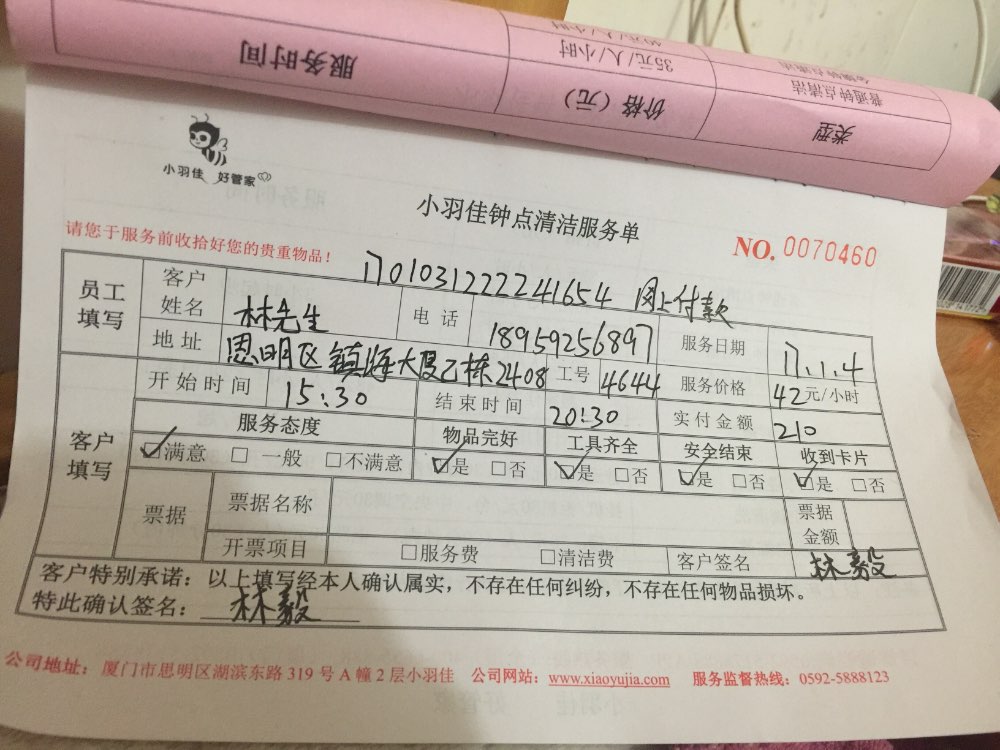 服务时间
35元/人/小时
价格（元）
普通钟点清洁
类型
小羽佳 好管家
小羽佳钟点清洁服务单
NO. 0070460
请您于服务前收拾好您的贵重物品！
17010312222241654 网上付款
员工填写
客户姓名 林先生 电话 18959256897 服务日期 17.1.4
地址 思明区镇海大厦乙栋2408 工号 4644 服务价格 42元/小时
开始时间 15:30 结束时间 20:30 实付金额 210
客户填写
服务态度 物品完好 工具齐全 安全结束 收到卡片
☑满意 □一般 □不满意 ☑是 □否 ☑是 □否 ☑是 □否 ☑是 □否
票据 票据名称 票据金额
开票项目 □服务费 □清洁费 客户签名 林毅
客户特别承诺：以上填写经本人确认属实，不存在任何纠纷，不存在任何物品损坏。
特此确认签名：林毅
公司地址：厦门市思明区湖滨东路319号A幢2层小羽佳 公司网站：www.xiaoyujia.com 服务监督热线：0592-5888123